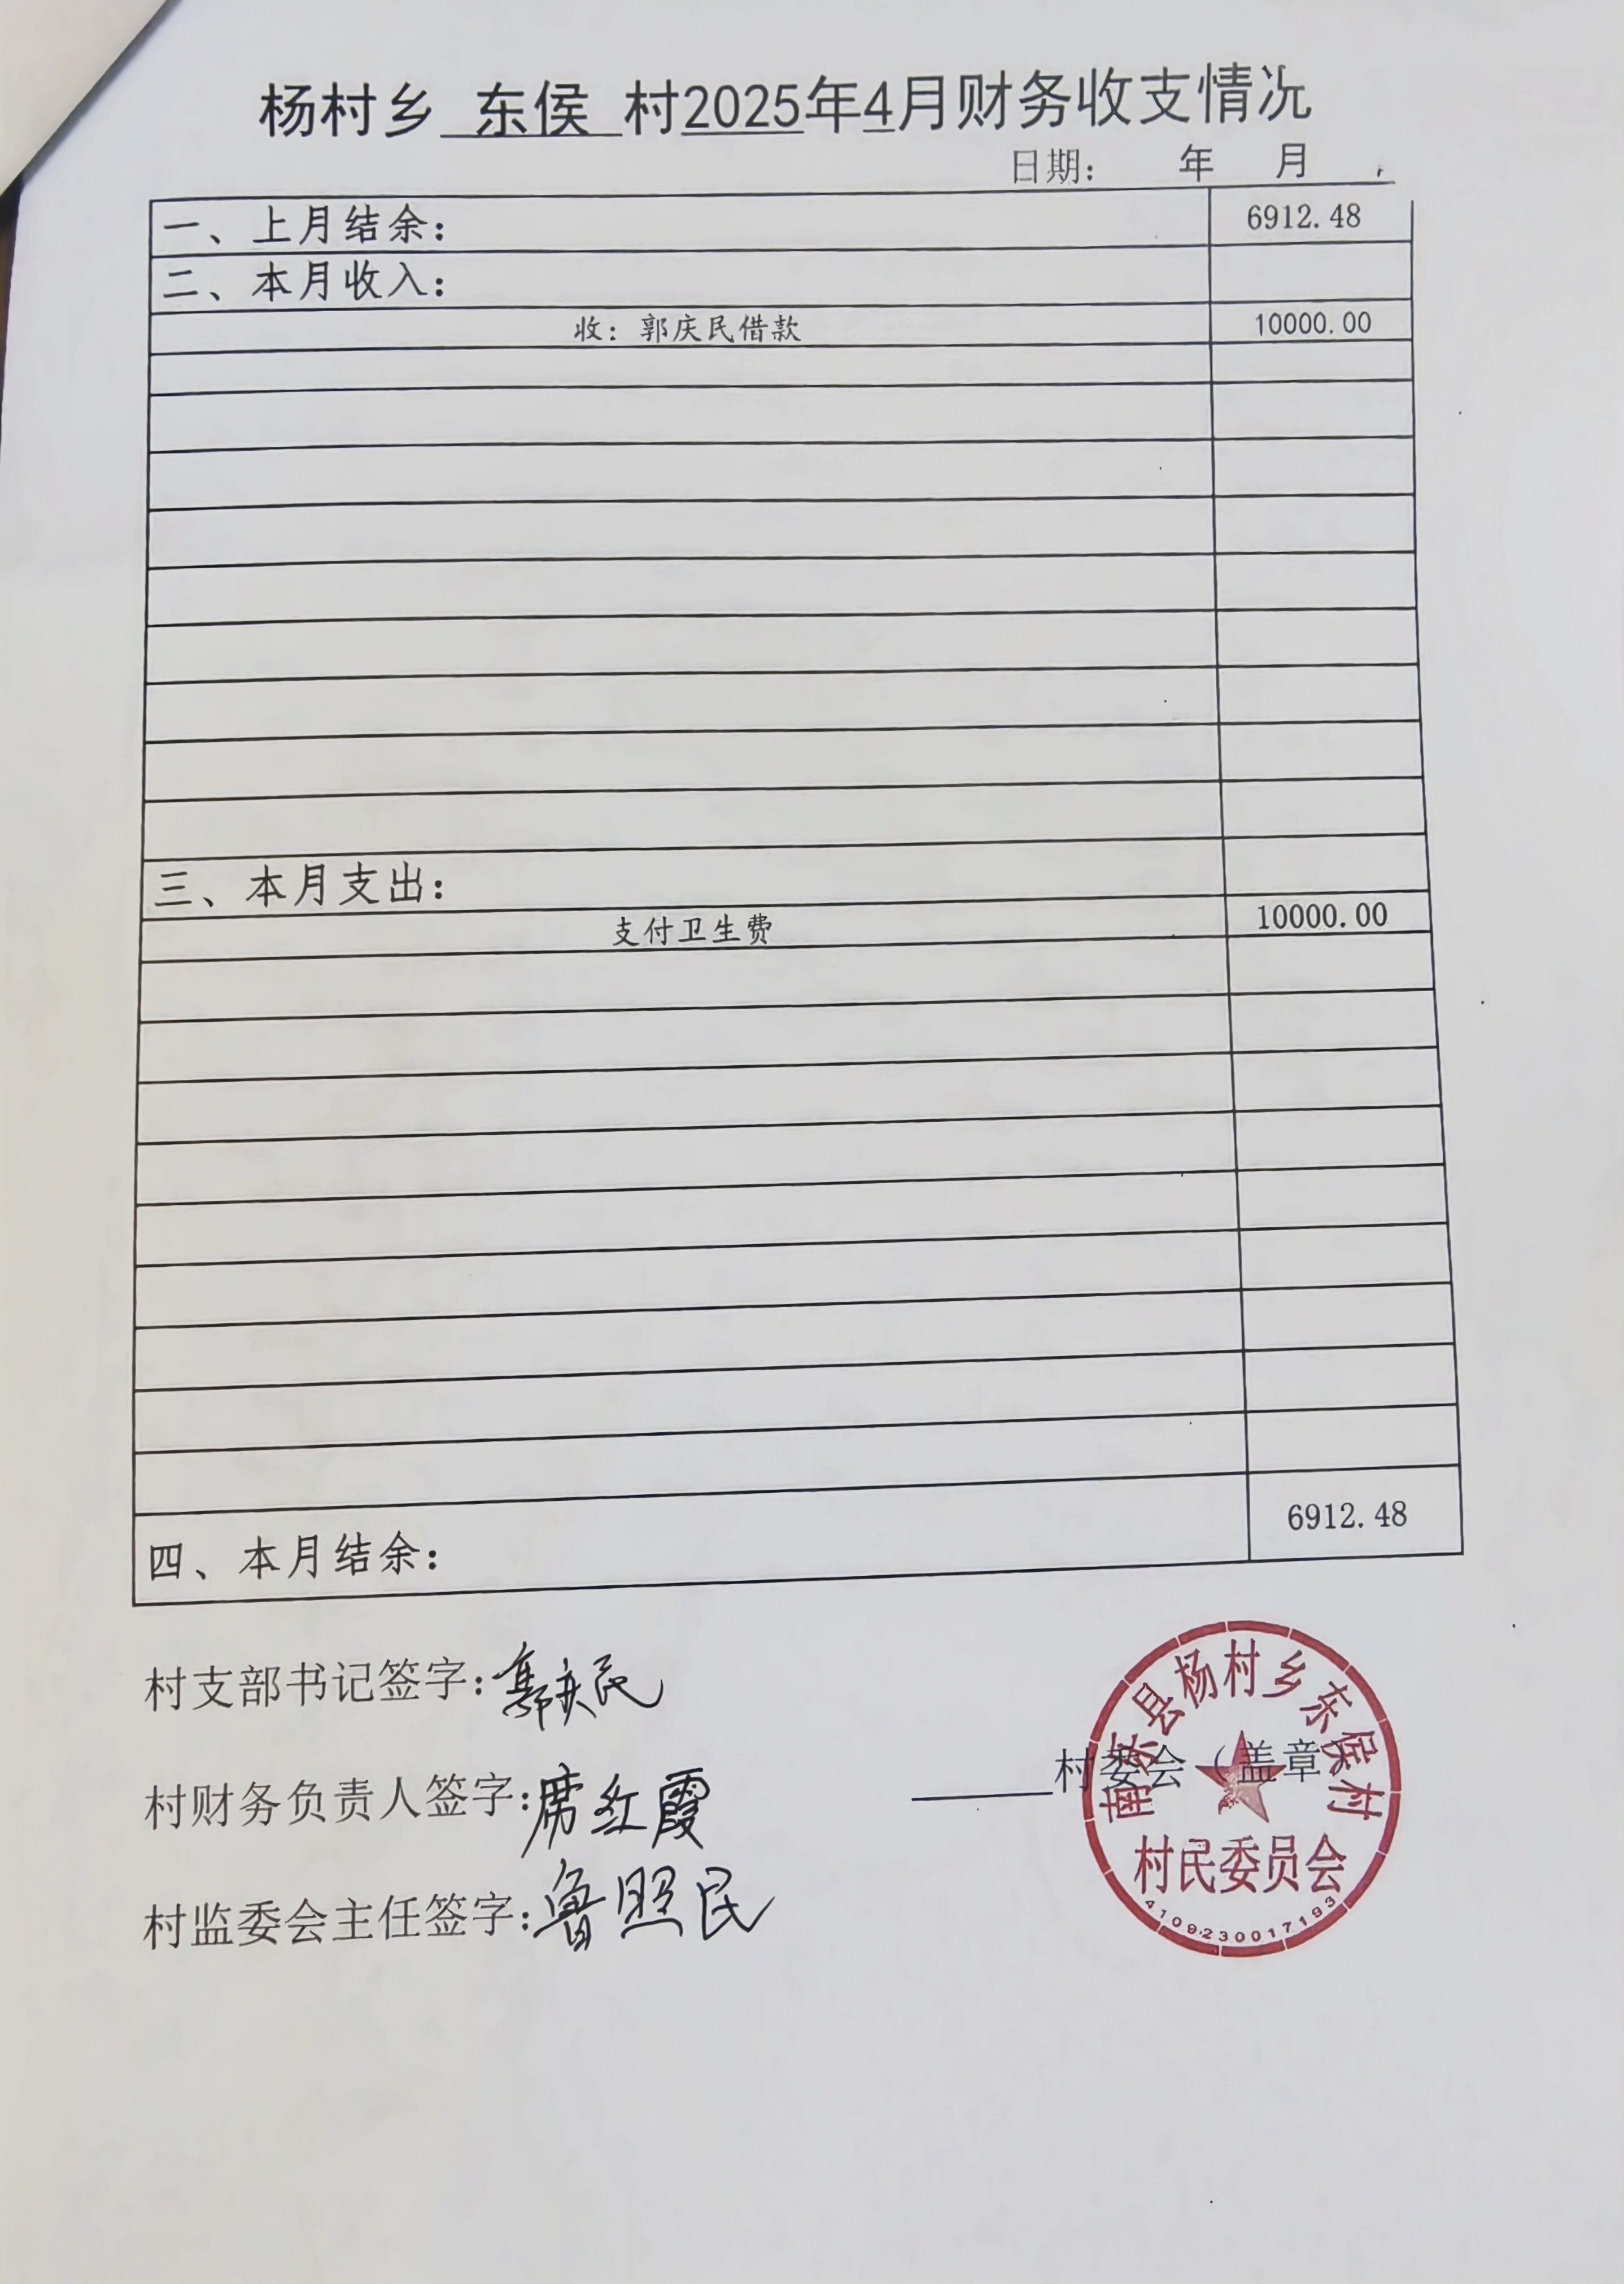 杨村乡 东侯 村2025年4月财务收支情况
日期: 年 月
一、上月结余: 6912.48
二、本月收入:
收: 郭庆民借款 10000.00
三、本月支出:
支付卫生费 10000.00
四、本月结余: 6912.48
村支部书记签字: 郭庆民
村财务负责人签字: 席红霞
村监委会主任签字: 鲁照民
村委会（盖章）
南乐县杨村乡东侯村
村民委员会
4109230017193